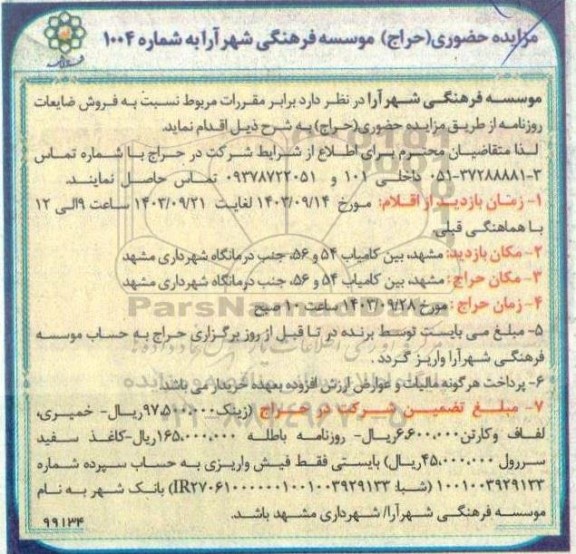 مزایده حضوری(حراج) موسسه فرهنگی شهرآرا به شماره ۱۰۰۴
موسسه فرهنگی شهرآرا در نظر دارد برابر مقررات مربوط نسبت به فروش ضایعات
روزنامه از طریق مزایده حضوری(حراج) به شرح ذیل اقدام نماید.
لذا متقاضیان محترم برای اطلاع از شرایط شرکت در حراج با شماره تماس
۰۵۱-۳۷۲۸۸۸۸۱-۳ داخلی ۱۰۱ و ۰۹۳۷۸۷۲۲۰۵۱ تماس حاصل نمایند.
۱- زمان بازدید از اقلام: مورخ ۱۴۰۳/۰۹/۱۴ لغایت ۱۴۰۳/۰۹/۲۱ ساعت ۹ الی ۱۲
با هماهنگی قبلی
۲- مکان بازدید: مشهد، بین کامیاب ۵۴ و ۵۶، جنب درمانگاه شهرداری مشهد
۳- مکان حراج: مشهد، بین کامیاب ۵۴ و ۵۶، جنب درمانگاه شهرداری مشهد
۴- زمان حراج: مورخ ۱۴۰۳/۰۹/۲۸ ساعت ۱۰ صبح
ParsNamad
۵- مبلغ می بایست توسط برنده در تا قبل از روز برگزاری حراج به حساب موسسه
فرهنگی شهرآرا واریز گردد.
۶- پرداخت هرگونه مالیات و عوارض ارزش افزوده بعهده خریدار می باشد.
۷- مبلغ تضمین شرکت در حراج (زینک ۹۷.۵۰۰.۰۰۰ریال- خمیری،
لفاف وکارتن ۶.۶۰۰.۰۰۰ریال- روزنامه باطله ۱۶۵.۰۰۰.۰۰۰ریال-کاغذ سفید
سررول ۴۵.۰۰۰.۰۰۰ریال) بایستی فقط فیش واریزی به حساب سپرده شماره
۱۰۰۱۰۰۳۹۲۹۱۳۳ (شبا: IR۲۷۰۶۱۰۰۰۰۰۰۰۱۰۰۱۰۰۳۹۲۹۱۳۳) بانک شهر به نام
موسسه فرهنگی شهرآرا/ شهرداری مشهد باشد.
۹۹۱۳۴